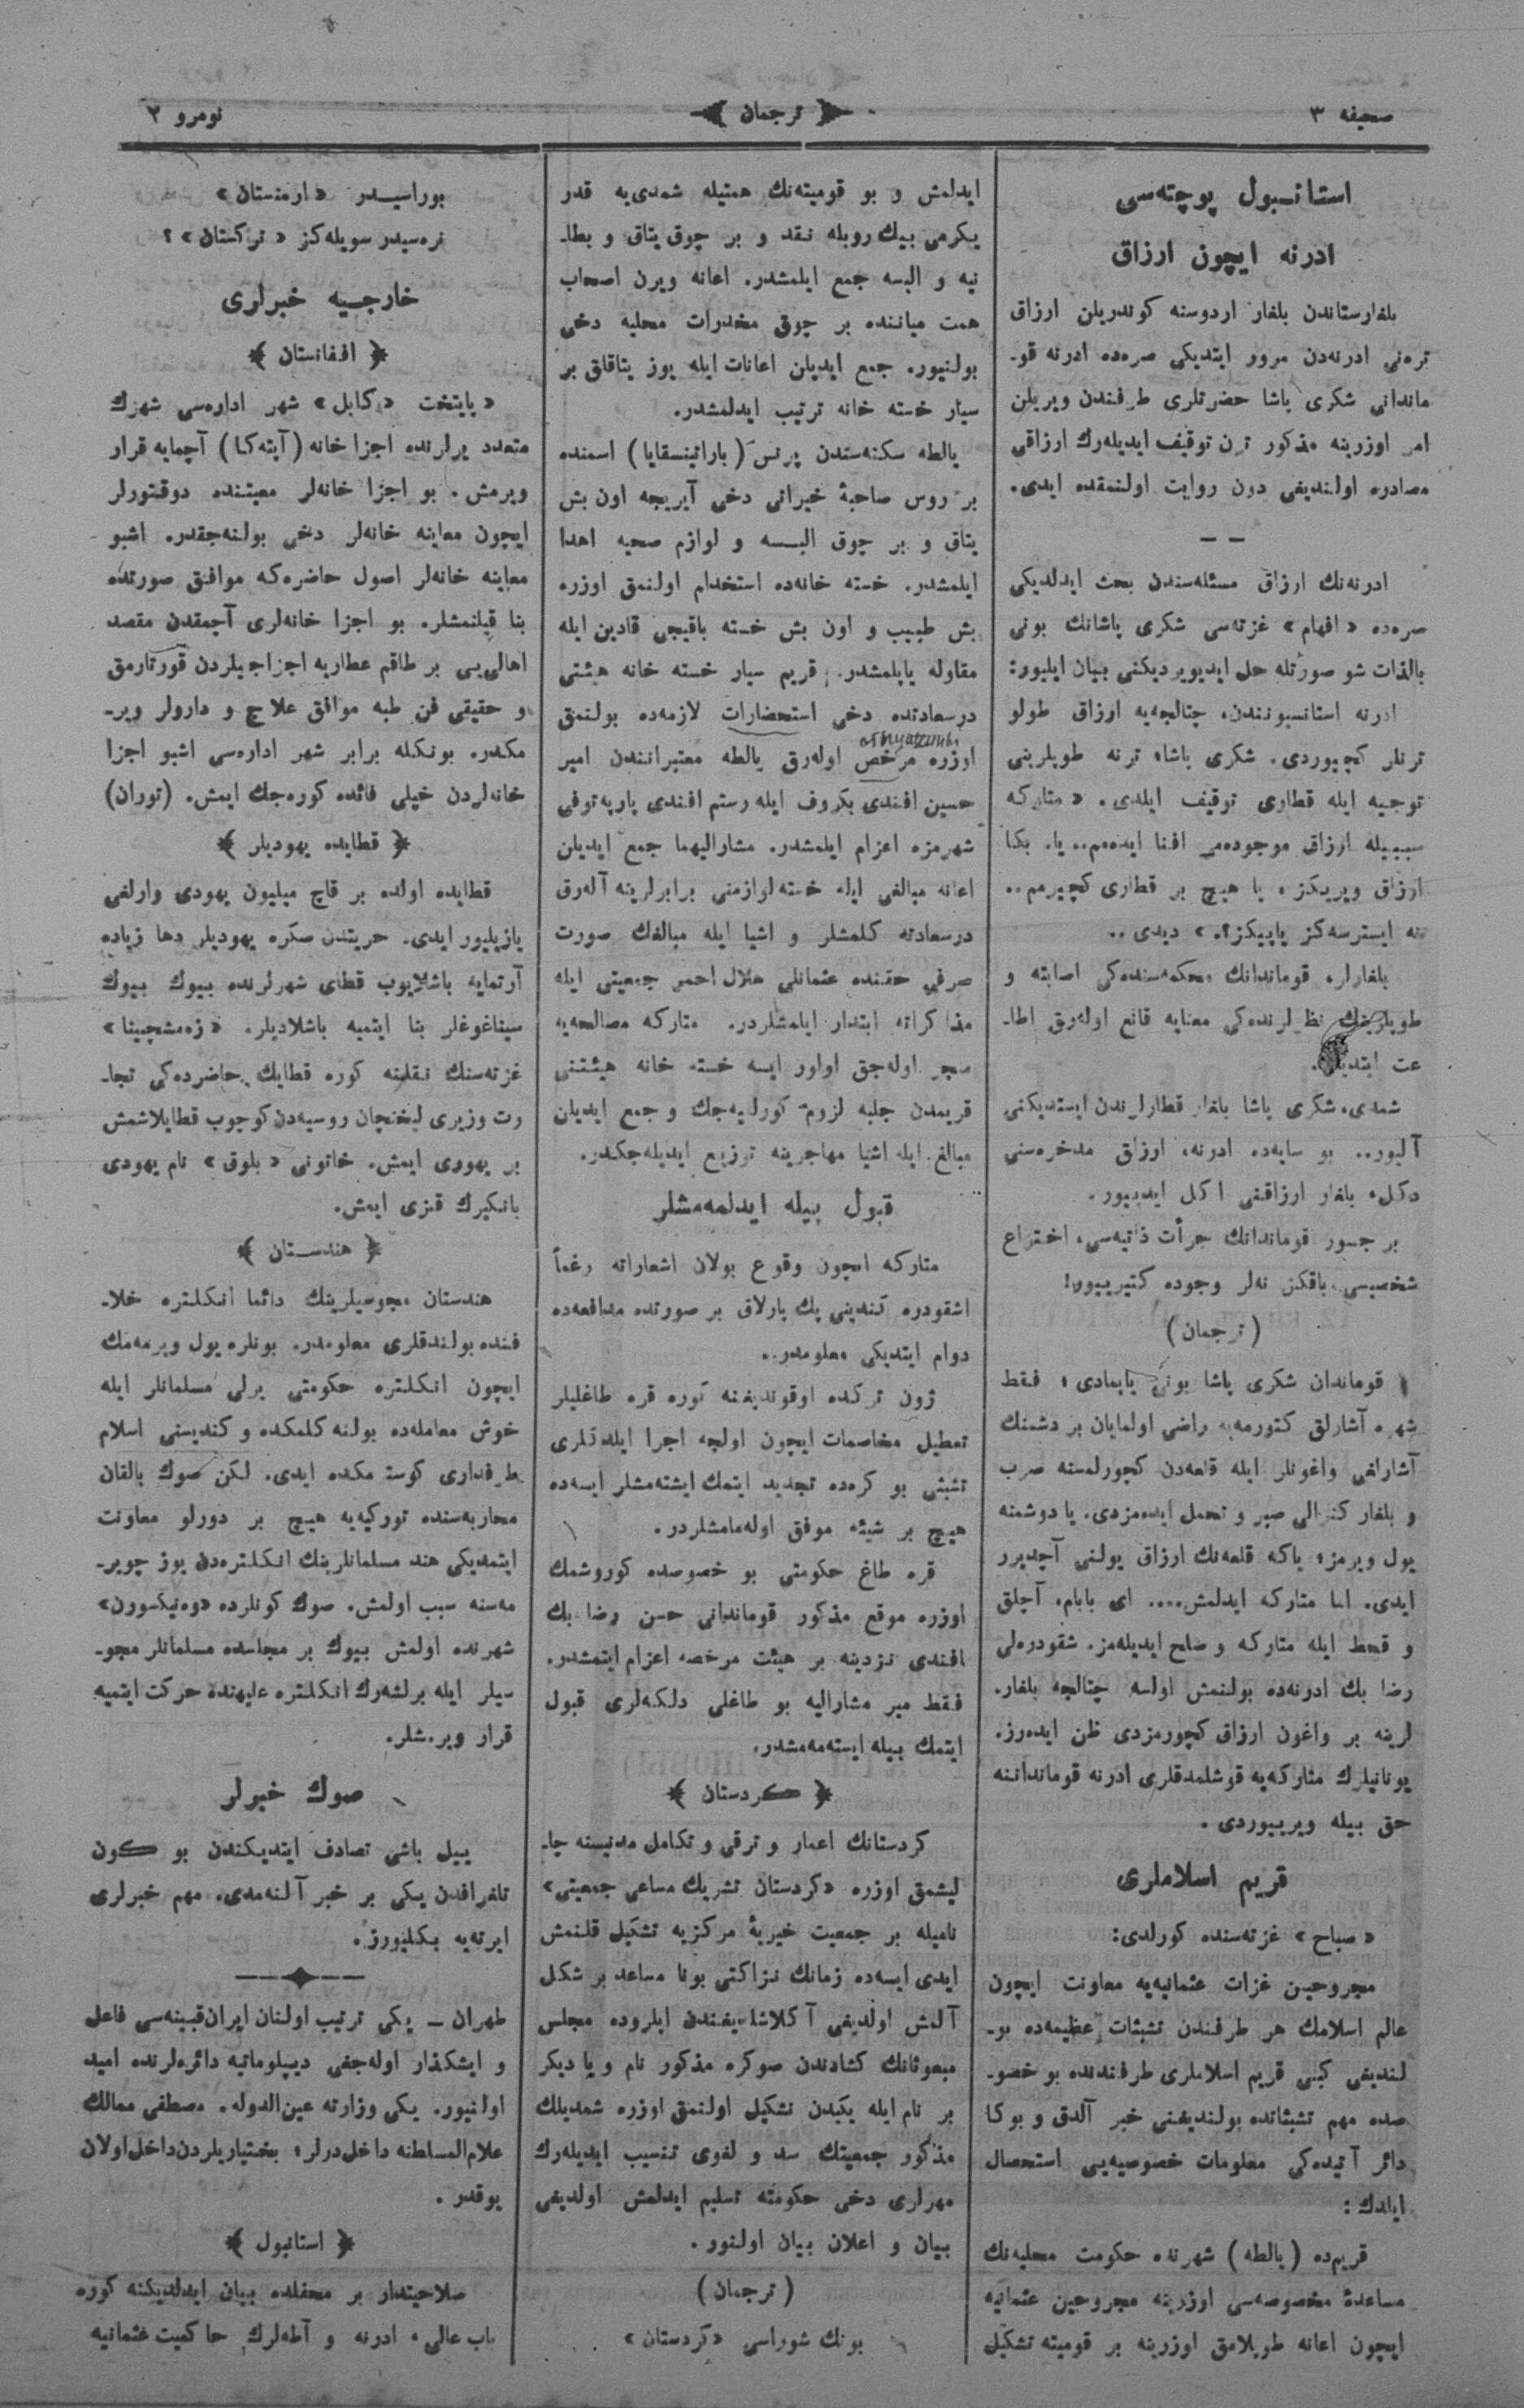 صحيفه ٣
ترجمان
نومرو ٢
استانبول پوچته‌سى
ادرنه ايچون ارزاق
بلغارستاندن بلغار اردوسنه كوندريلن ارزاق
ترەنى ادرنه‌دن مرور ايتديكى صره‌ده ادرنه قو-
ماندانى شكرى پاشا حضرتلرى طرفندن ويريلن
امر اوزرينه مذكور ترن توقيف ايديله‌رك ارزاقى
مصادره اولنديغى دون روايت اولنمقده ايدى.
ادرنه‌نك ارزاق مسئله‌سندن بحث ايدلديكى
صره‌ده «افهام» غزته‌سى شكرى پاشانك بونى
بالذات شو صورتله حل ايديويرديكنى بيان ايليور:
ادرنه استانسيونندن، چتالجه‌يه ارزاق طولو
ترنلر كچيوردى. شكرى پاشا، ترنه طوپلرينى
توجيه ايله قطارى توقيف ايلدى. «متاركه
سببيله ارزاق موجوده‌مى افنا ايده‌مم.. يا، بكا
ارزاق ويريكز، يا هيچ بر قطارى كچيرمم..
نه ايسترسه‌كز ياپيكز؟.» ديدى..
بلغارلر، قوماندانك محكمه‌سنده‌كى اصابته و
طوپلرينك نظرلرنده‌كى معنايه قانع اوله‌رق اطا-
عت ايتديلر.
شمدى، شكرى پاشا بلغار قطارلرندن ايستديكنى
آليور.. بو سايه‌ده ادرنه، ارزاق مدخره‌سنى
دكل، بلغار ارزاقنى اكل ايدييور.
بر جسور قوماندانك جرأت ذاتيه‌سى، اختراع
شخصيسى، باقكز نه‌لر وجوده كتيرييور!
(ترجمان)
قوماندان شكرى پاشا بونى ياپمادى، فقط
شهره آشارلق كتورمه‌يه راضى اولمايان بر دشمنك
آشارلغى واغونلر ايله قلعه‌دن كچورلمسنه صرب
و بلغار كنرالى صبر و تحمل ايده‌مزدى. يا دوشمنه
يول ويرمز، ياكه قلعه‌نك ارزاق يولنى آچديرر
ايدى. اما متاركه ايدلمش.... اى بابام، آچلق
و قحط ايله متاركه و صلح ايديله‌مز. شقودره‌لى
رضا بك ادرنه‌ده بولنمش اولسه چتالجه بلغار-
لرينه بر واغون ارزاق كچورمزدى ظن ايده‌رز.
يونانيلرك متاركه‌يه قوشلمدقلرى ادرنه قوماندانـنه
حق بيله ويرييوردى.
قريم اسلاملرى
«صباح» غزته‌سنده كورلدى:
مجروحين غزات عثمانيه‌يه معاونت ايچون
عالم اسلامك هر طرفندن تشبثات عظيمه‌ده بو-
لنديغى كبى قريم اسلاملرى طرفندنده بو خصو-
صده مهم تشبثاتده بولنديغنى خبر آلدق و بوكا
دائر آتيده‌كى معلومات خصوصيه‌يى استحصال
ايلدك:
قريمده (يالطه) شهرنده حكومت محليه‌نك
مساعدۀ مخصوصه‌سى اوزرينه مجروحين عثمانيه
ايچون اعانه طوپلامق اوزرينه بر قوميته تشكيل
ايدلمش و بو قوميته‌نك همتيله شمدى‌يه قدر
يكرمى بيك روبله نقد و بر چوق يتاق و بطا-
نيه و البسه جمع ايلمشدر. اعانه ويرن اصحاب
همت ميانـنده بر چوق مخدرات محليه دخى
بولنيور. جمع ايديلن اعانات ايله يوز يتاقلق بر
سيار خسته خانه ترتيب ايدلمشدر.
يالطه سكنه‌سندن پرنس (باراتينسقايا) اسمنده
بر روس صاحبۀ خيراتى دخى آيريجه اون بش
يتاق و بر چوق البسه و لوازم صحيه اهدا
ايلمشدر. خسته خانه‌ده استخدام اولنمق اوزره
بش طبيب و اون بش خسته باقيجى قادين ايله
مقاوله ياپلمشدر. قريم سيار خسته خانه هيئتى
درسعادتده دخى استحضارات لازمه‌ده بولنمق
اوزره مرخص اوله‌رق يالطه معتبرانندن امير
حسين افندى بكروف ايله رستم افندى پاريه‌توفى
شهرمزه اعزام ايلمشدر. مشاراليهما جمع ايديلن
اعانه مبالغى ايله خسته لوازمنى برابرلرينه آله‌رق
درسعادته كلمشلر و اشيا ايله مبالغك صورت
صرفى حقنده عثمانلى هلال احمر جمعيتى ايله
مذاكراته ابتدار ايلمشلردر. متاركه مصالحه‌يه
منجر اوله‌جق اولور ايسه خسته خانه هيئتنى
قريمدن جلبه لزوم كورلميه‌جك و جمع ايديلن
مبالغ ايله اشيا مهاجرينه توزيع ايديله‌جكدر.
قبول بيله ايدلمه‌مشلر
متاركه ايچون وقوع بولان اشعاراته رغماً
اشقودره كندينى پك پارلاق بر صورتده مدافعه‌ده
دوام ايتديكى معلومدر..
ژون تركده اوقونديغنه كوره قره طاغليلر
تعطيل مخاصمات ايچون اولجه اجرا ايلدكلرى
تشبثى بو كره‌ده تجديد ايتمك ايشته‌مشلر ايسه‌ده
هيچ بر شيئه موفق اوله‌مامشلردر.
قره طاغ حكومتى بو خصوصده كوروشمك
اوزره موقع مذكور قوماندانى حسن رضا بك
افندى نزدينه بر هيئت مرخصه اعزام ايتمشدر.
فقط مير مشاراليه بو طاغلى دلكه‌لرى قبول
ايتمك بيله ايسته‌مه‌مشدر.
كردستان
كردستانك اعمار و ترقى و تكامل مدنيسنه چا-
ليشمق اوزره «كردستان تشريك مساعى جمعيتى»
ناميله بر جمعيت خيريۀ مركزيه تشكيل قلنمش
ايدى ايسه‌ده زمانك نزاكتى بونا مساعد بر شكل
آلمش اولديغى آكلاشلديغندن ايلروده مجلس
مبعوثانك كشادندن صوكره مذكور نام و يا ديكر
بر نام ايله يكيدن تشكيل اولنمق اوزره شمديلك
مذكور جمعيتك سد و لغوى تنسيب ايديله‌رك
مهرلرى دخى حكومته تسليم ايدلمش اولديغى
بيان و اعلان بيان اولنور.
(ترجمان)
بونك شوراسى «كردستان»
بوراسيدر «ارمنستان»
نره‌سيدر سويله‌كز «تركستان»؟
خارجيه خبرلرى
افغانستان
«پايتخت «كابل» شهر اداره‌سى شهرك
متعدد يرلرنده اجزا خانه (آپته‌كا) آچمايه قرار
ويرمش. بو اجزا خانه‌لر معيتنده دوقتورلر
ايچون معاينه خانه‌لر دخى بولنه‌جقدر. اشبو
معاينه خانه‌لر اصول حاضره‌كه موافق صورتده
بنا قيلنمشلر. بو اجزا خانه‌لرى آچمقدن مقصد
اهالى‌يى بر طاقم عطاريه اجزاجيلردن قورتارمق
و حقيقى فن طبه موافق علاج و دارولر وير-
مكدر. بونكله برابر شهر اداره‌سى اشبو اجزا
خانه‌لردن خيلى فائده كوره‌جك ايمش. (توران)
قطايده يهوديلر
قطايده اولده بر قاچ ميليون يهودى وارلغى
يازيليور ايدى. حريتدن صكره يهوديلر دها زياده
آرتمايه باشلايوب قطاى شهرلرنده بيوك بيوك
سيناغوغلر بنا ايتميه باشلاديلر.
غزته‌سنك نقلينه كوره قطايك حاضرده‌كى تجا-
رت وزيرى ليخنچان روسيه‌دن كوچوب قطايلاشمش
بر يهودى ايمش. خاتونى «بلوق» نام يهودى
بانكيرك قيزى ايمش.
هندستان
هندستان مجوسيلرينك دائما انكلتره خلا-
فنده بولندقلرى معلومدر. بونلره يول ويرمه‌مك
ايچون انكلتره حكومتى يرلى مسلمانلر ايله
خوش معامله‌ده بولنه كلمكده و كنديسنى اسلام
طرفدارى كوسترمكده ايدى. لكن صوك بالقان
محاربه‌سنده توركيه‌يه هيچ بر دورلو معاونت
ايتمديكى هند مسلمانلرينك انكلتره‌دن يوز چوير-
مه‌سنه سبب اولمش. صوك كونلرده
شهرنده اولمش بيوك بر مجلسده مسلمانلر مجو-
سيلر ايله برلشه‌رك انكلتره عليهنده حركت ايتميه
قرار ويرمشلر.
صوك خبرلر
ييل باشى تصادف ايتديكندن بو كون
تلغرافدن يكى بر خبر آلنه‌مدى. مهم خبرلرى
ايرته‌يه بكليورز.
طهران — يكى ترتيب اولنان ايران قبينه‌سى فاعل
و ايشكذار اوله‌جغى ديپلوماتيه دائره‌لرنده اميد
اولنيور. يكى وزارته عين‌الدوله، مصطفى ممالك
علام‌السلطنه داخل‌درلر، بختياريلردن داخل اولان
يوقدر.
استانبول
صلاحيتدار بر محفلده بيان ايدلديكنه كوره
باب عالى، ادرنه و آطه‌لرك حاكميت عثمانيه